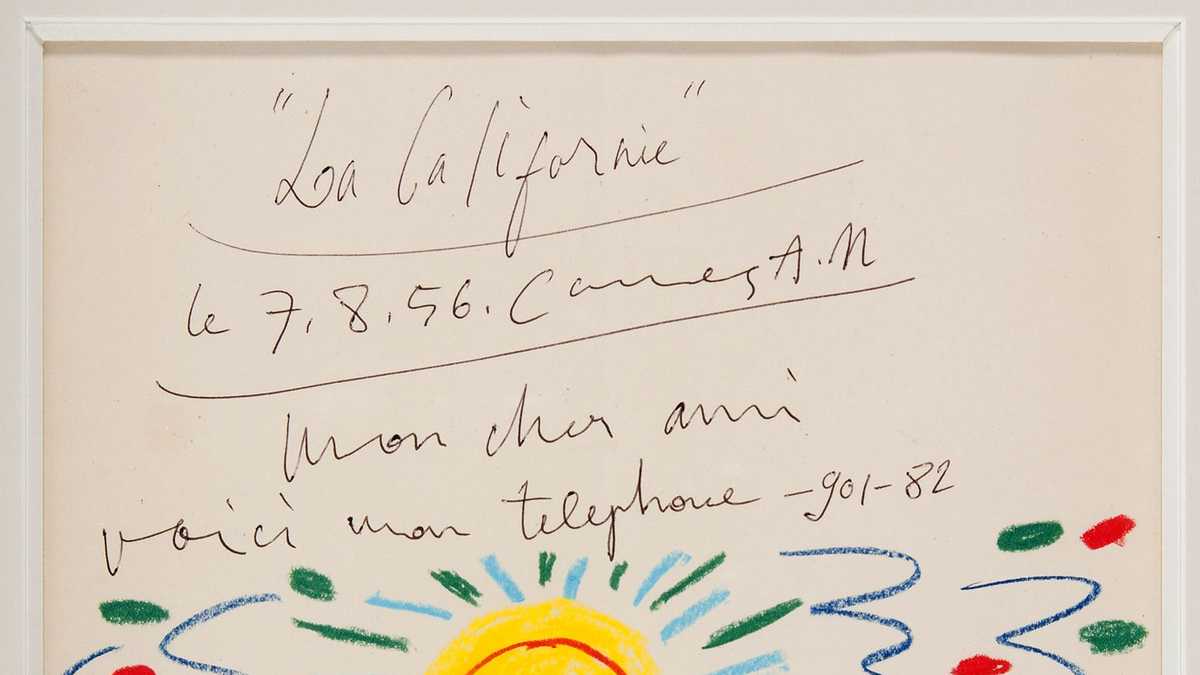 "La Californie"
le 7.8.56. Cannes A.M
mon cher ami
voici mon telephone -901-82